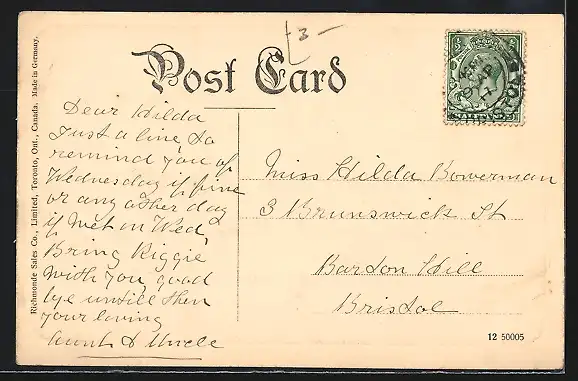 £3 -
Post Card
Richmonde Sales Co., Limited, Toronto, Ont., Canada. Made in Germany.
Dear Hilda
Just a line to
remind you of
Wednesday if fine
or any other day
if wet on Wed,
Bring Riggie
with you good
bye untill then
your loving
Aunt & Uncle
Miss Hilda Bowerman
3 Brunswick St
Barton Hill
Bristol
12 50005